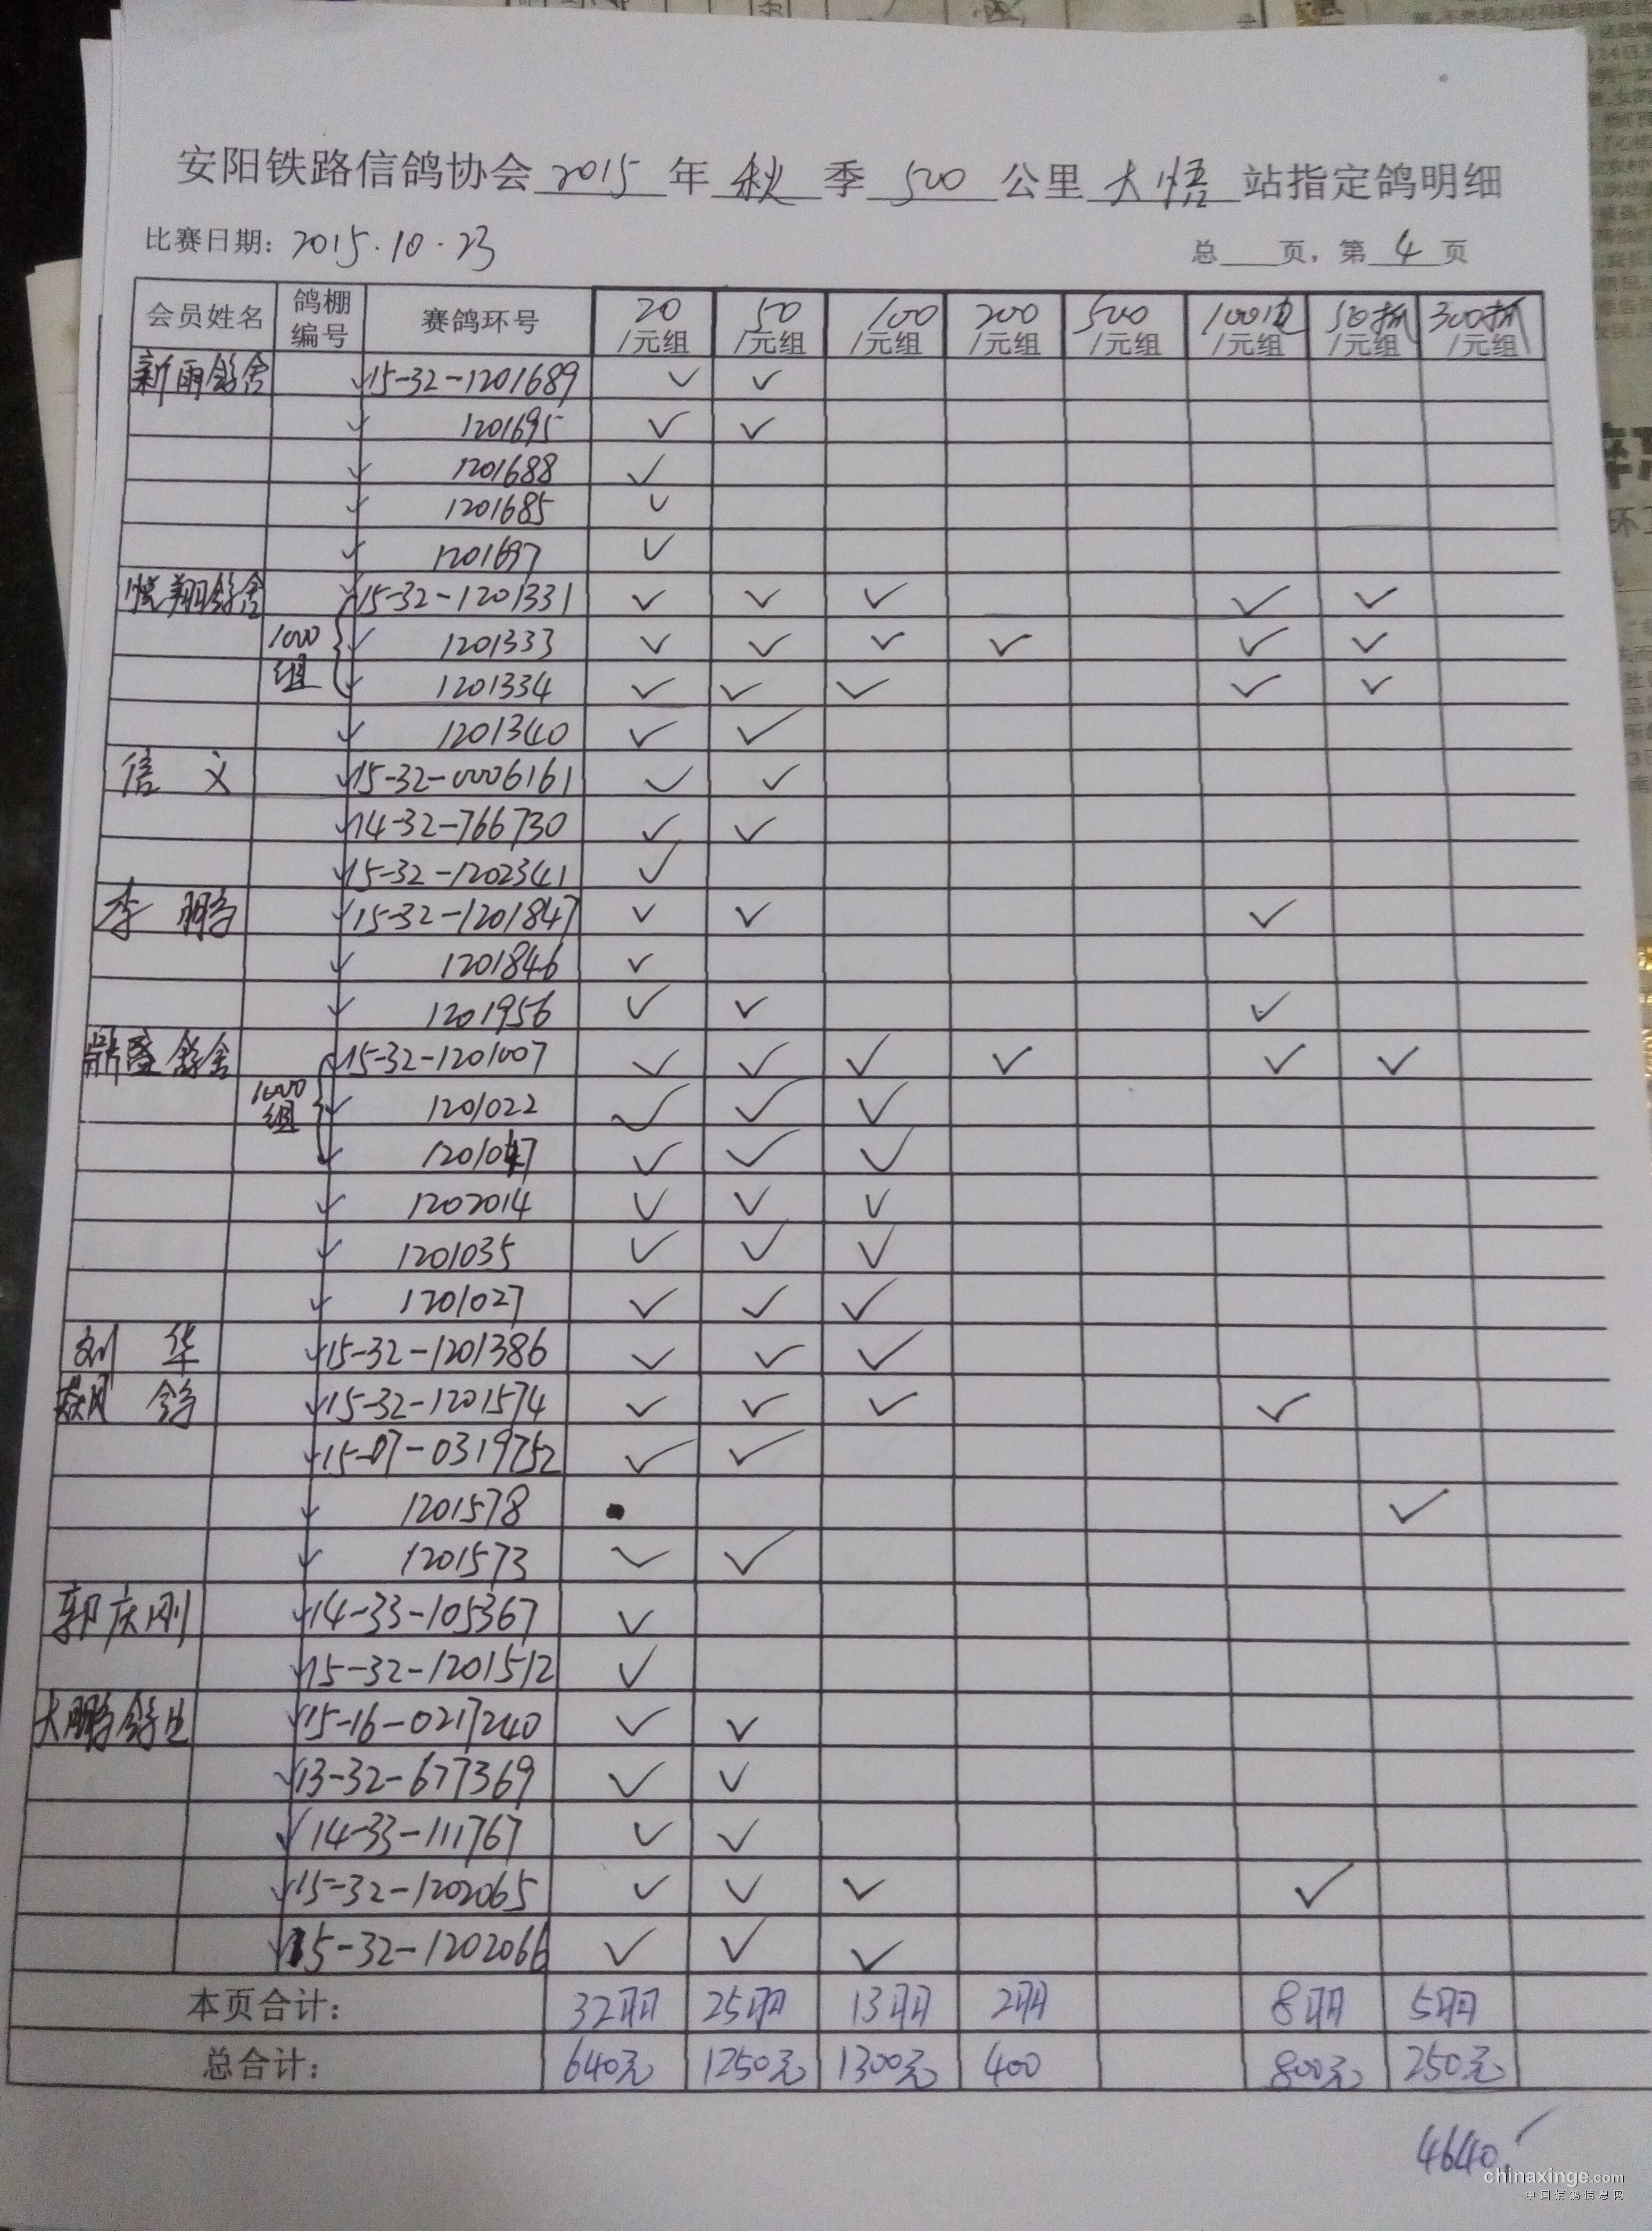 安阳铁路信鸽协会 2015 年 秋 季 500 公里 大悟 站指定鸽明细
比赛日期: 2015.10.23 总 页, 第 4 页
会员姓名 鸽棚编号 赛鸽环号 20/元组 50/元组 100/元组 200/元组 500/元组 100/元组 50抓/元组 300抓/元组
新雨鸽舍 ✓15-32-1201689 ✓ ✓
✓ 1201695 ✓ ✓
✓ 1201688 ✓
✓ 1201685 ✓
✓ 1201697 ✓
悦翔鸽舍 ✓15-32-1201331 ✓ ✓ ✓ ✓ ✓
1000组 ✓ 1201333 ✓ ✓ ✓ ✓ ✓ ✓
✓ 1201334 ✓ ✓ ✓ ✓ ✓
✓ 1201340 ✓ ✓
信义 ✓15-32-0006161 ✓ ✓
✓14-32-766730 ✓ ✓
✓15-32-1202341 ✓
李鹏 ✓15-32-1201847 ✓ ✓ ✓
✓ 1201846 ✓
✓ 1201956 ✓ ✓ ✓
鸽舍 15-32-1201007 ✓ ✓ ✓ ✓ ✓ ✓
1000组 ✓ 1201022 ✓ ✓ ✓
✓ 1201047 ✓ ✓ ✓
✓ 1202014 ✓ ✓ ✓
✓ 1201035 ✓ ✓ ✓
✓ 1201027 ✓ ✓ ✓
刘华 ✓15-32-1201386 ✓ ✓ ✓
飙鸽 ✓15-32-1201574 ✓ ✓ ✓ ✓
✓15-07-0319752 ✓ ✓
✓ 1201578 ✓
✓ 1201573 ✓ ✓
郭庆刚 ✓14-33-105367 ✓
✓15-32-1201512 ✓
大鹏鸽 ✓15-16-0217240 ✓ ✓
✓13-32-677369 ✓ ✓
✓14-33-111767 ✓ ✓
✓15-32-1202065 ✓ ✓ ✓ ✓
✓15-32-1202066 ✓ ✓ ✓
本页合计: 32羽 25羽 13羽 2羽 8羽 5羽
总合计: 640元 1250元 1300元 400 800元 250元
4640.✓
chinaxinge.com
中国信鸽信息网